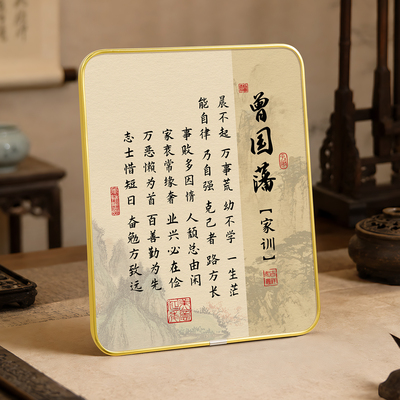 曾国藩
【家训】
晨不起 万事荒 幼不学 一生茫
能自律 乃自强 克己者 路方长
事败多因惰 人颓总由闲
家衰常缘奢 业兴必在俭
万恶懒为首 百善勤为先
志士惜短日 奋勉方致远